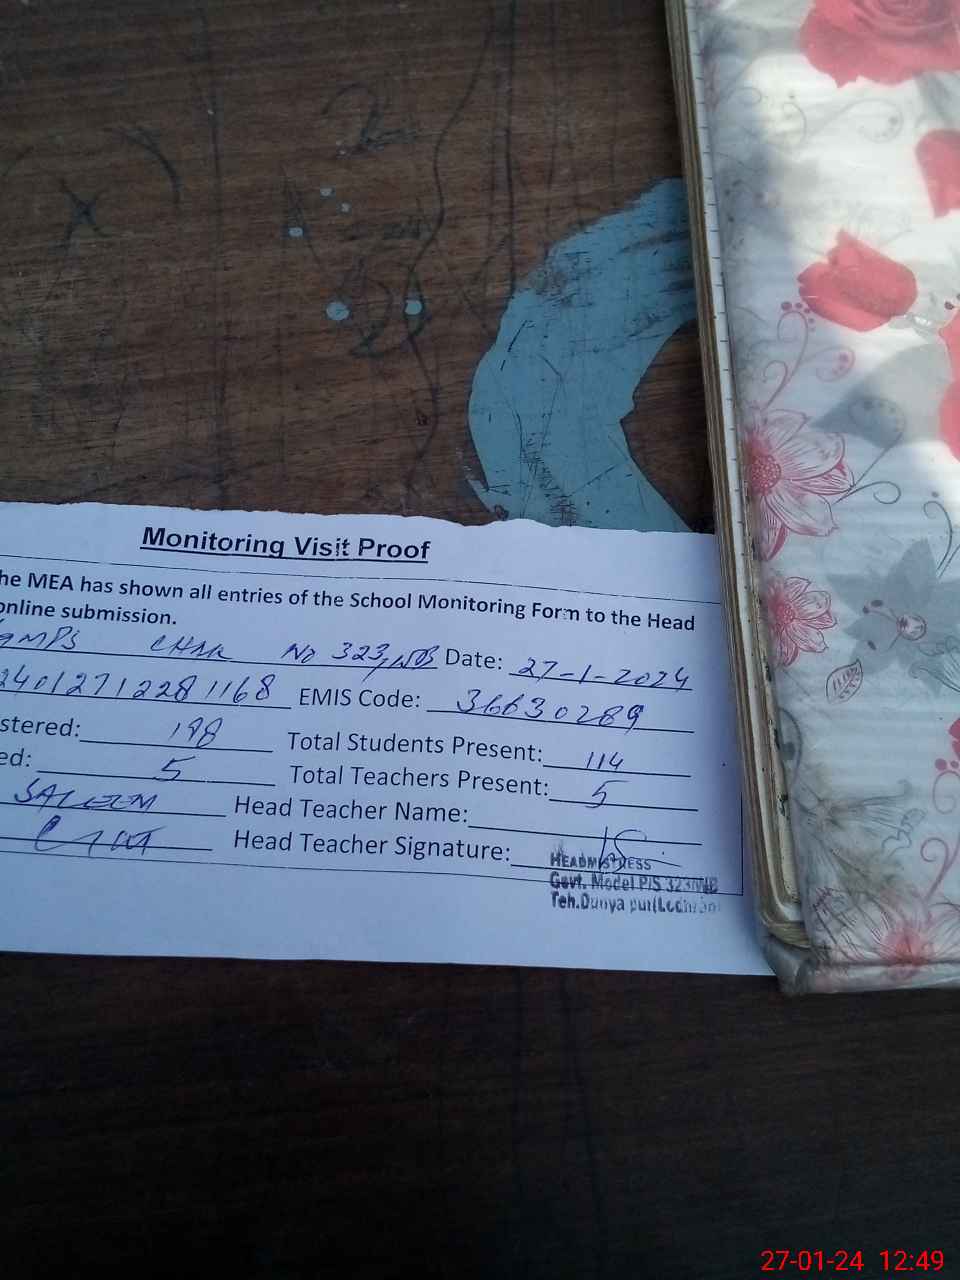 Monitoring Visit Proof
he MEA has shown all entries of the School Monitoring Form to the Head
online submission.
GMPS CHAK No 323/WB Date: 27-1-2024
24012712281168 EMIS Code: 36630289
stered: 198 Total Students Present: 114
ed: 5 Total Teachers Present: 5
SALEEM Head Teacher Name:
Head Teacher Signature:
HEADMISTRESS
Govt. Model P/S 323/WB
Teh.Dunya pur(Lodhran
27-01-24 12:49